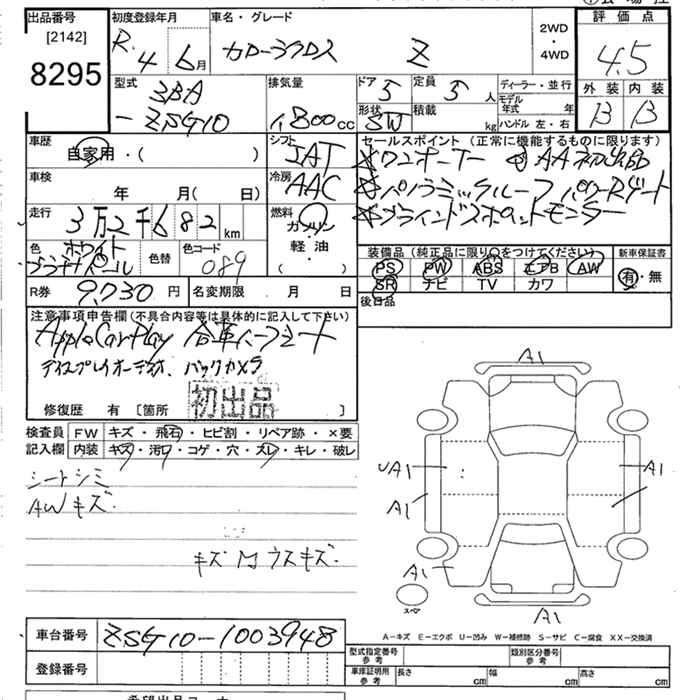 出品番号
[2142]
8295
初度登録年月
R. 4 6月
車名・グレード
カローラクロス Z
2WD
・
4WD
評価点
4.5
外装 内装
B B
型式
3BA
-ZSG10
排気量
1,800cc
ドア 5
定員 5人
形状 SW
積載 kg
ディーラー・並行
モデル年式 年
ハンドル 左・右
車歴
自家用・( )
シフト
車検
年 月(日)
冷房
AAC
走行
3万2千682km
燃料
ガソリン
軽・油
( )
色 ホワイト
プラチナパール
色替
色コード 089
R券 9,730円
名変期限 月 日
セールスポイント(正常に機能するものに限ります)
☆ワンオーナー ☆AA初出品
☆パノラミックルーフ パワーRゲート
☆ブラインドスポットモニター
装備品(純正品に限り○をつけてください)
PS PW ABS エアB AW
SR ナビ TV カワ
新車保証書
有・無
後日品
注意事項申告欄(不具合内容等は具体的に記入して下さい)
AppleCarPlay 合革ハーフシート
ディスプレイオーディオ、バックカメラ
初出品
修復歴 有 [箇所 ]
検査員
記入欄
FW キズ・飛石・ヒビ割・リペア跡・×要
内装 キズ・汚れ・コゲ・穴・スレ・キレ・破レ
シートシミ
AWキズ
キズ M ウスキズ.
A1
UA1
A1
A1
A1
A1
スペア
A－キズ E－エクボ U－凹み W－補修跡 S－サビ C－腐食 XX－交換済
車台番号 ZSG10-1003948
登録番号
型式指定番号
参考
類別区分番号
参考
車庫証明用
参考
長さ cm
幅 cm
高さ cm